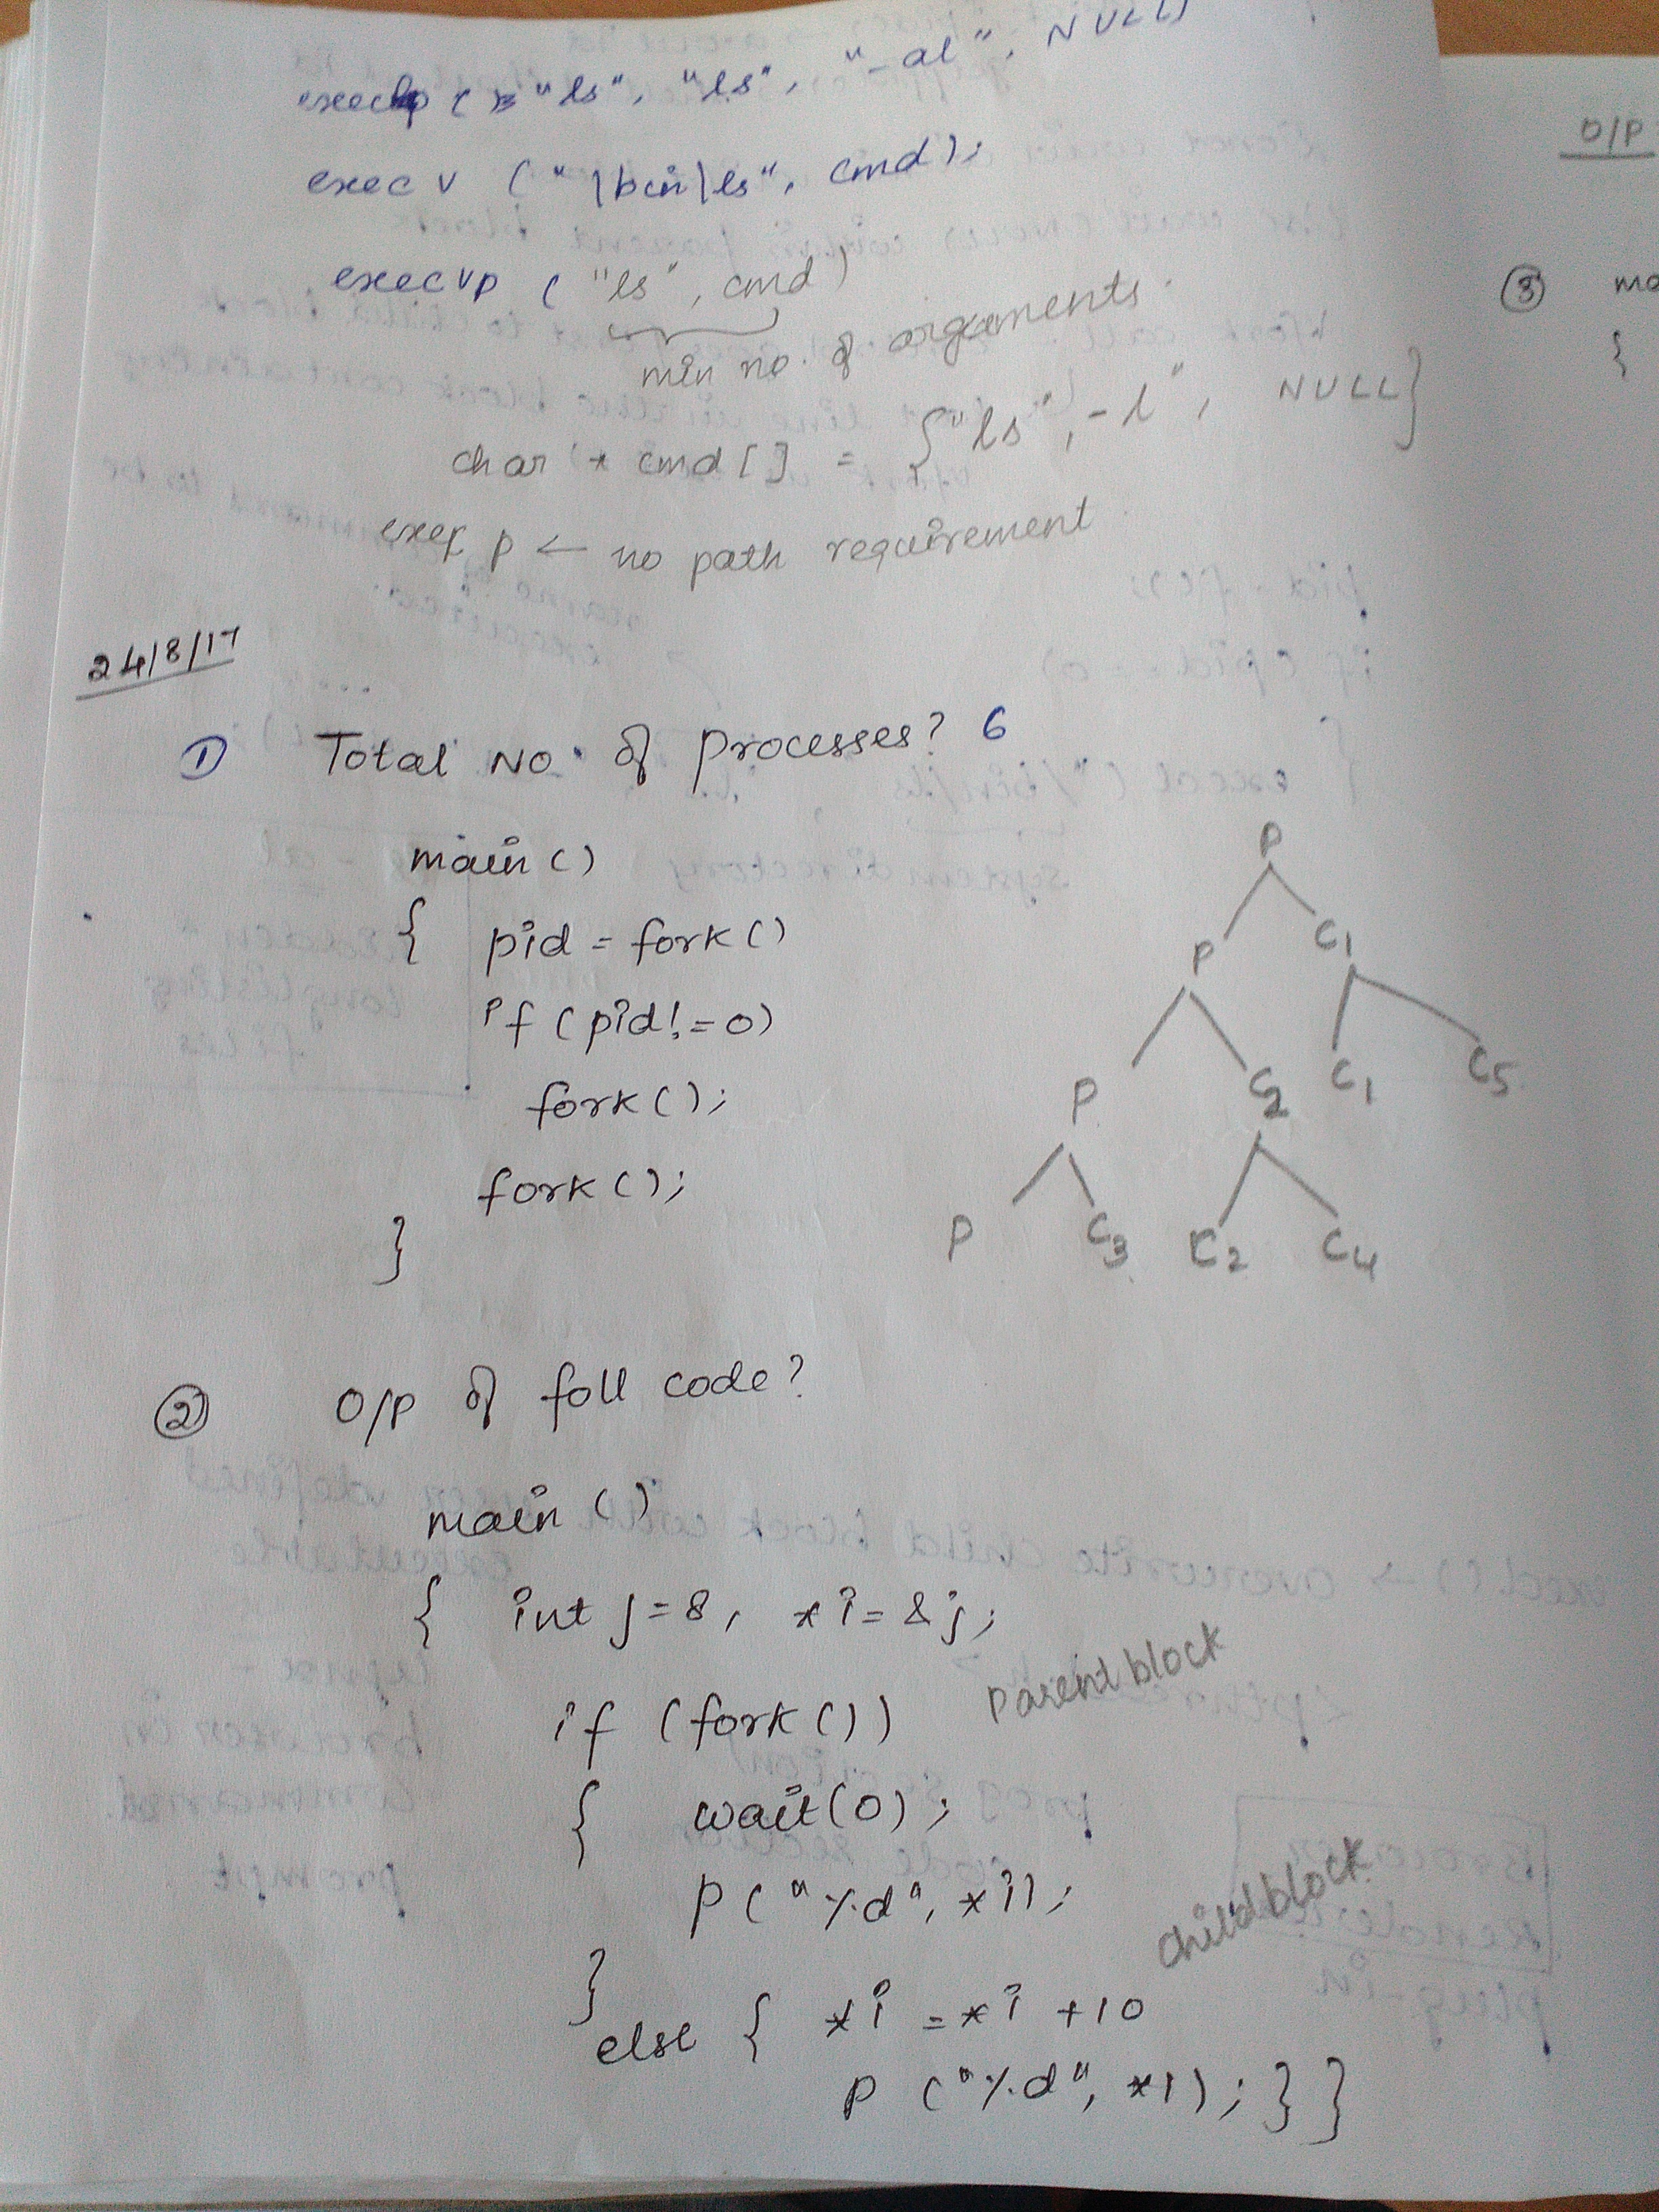 execlp ( "ls", "ls", "-al", NULL)
execv ("\bin\ls", cmd);
execvp ( "ls", cmd)
min no. of arguments.
char * cmd [] = {"ls", -l", NULL}
p ← no path requirement
24/8/17
① Total No. of processes? 6
main ()
{ pid = fork ()
if (pid! = 0)
fork ();
fork ();
}
P
P C1
P C2 C1 C5
P C3 C2 C4
② O/P of foll code?
main ()
{ int j=8, *i=&j;
if (fork ()) Parent block
{ wait(0);
P ("%d", *i);
}
child block
else { *i = *i +10
P ("%d", *i); } }
O/P
③ ma
{